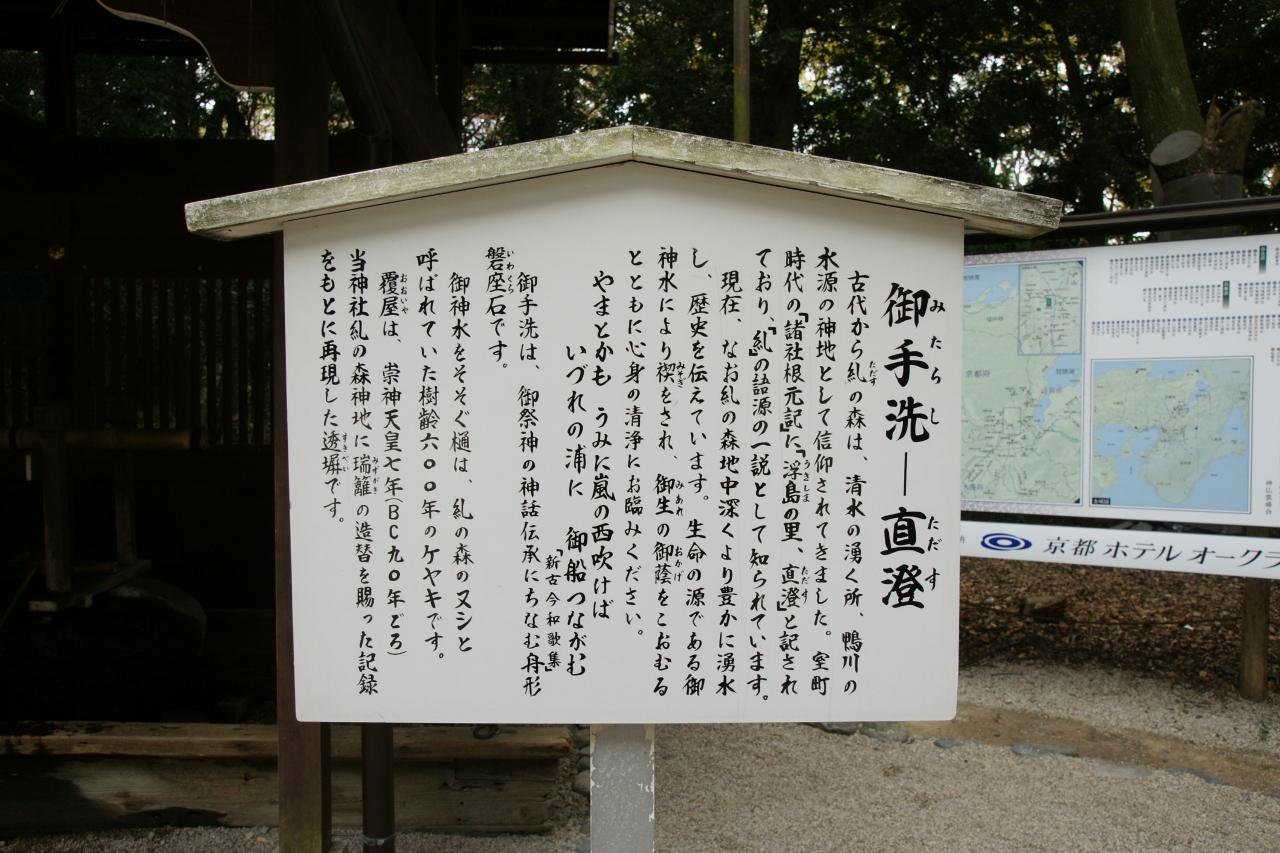 御手洗―直澄
みたらし
ただす
古代から糺の森は、清水の湧く所、鴨川の
ただす
水源の神地として信仰されてきました。室町
時代の「諸社根元記」に「浮島の里、直澄」と記され
うきしま
ただす
ており、「糺」の語源の一説として知られています。
現在、なお糺の森地中深くより豊かに湧水
し、歴史を伝えています。生命の源である御
神水により禊をされ、御生の御蔭をこおむる
みそぎ
みあれ
おかげ
とともに心身の清浄にお臨みください。
やまとかも うみに嵐の西吹けば
いづれの浦に 御船つながむ
「新古今和歌集」
御手洗は、御祭神の神話伝承にちなむ舟形
磐座石です。
いわくら
御神水をそそぐ樋は、糺の森のヌシと
呼ばれていた樹齢六〇〇年のケヤキです。
覆屋は、崇神天皇七年(BC九〇年ごろ)
おおいや
当神社糺の森神地に瑞籬の造替を賜った記録
みずがき
をもとに再現した透塀です。
すきべい
京都府
京都ホテルオークラ